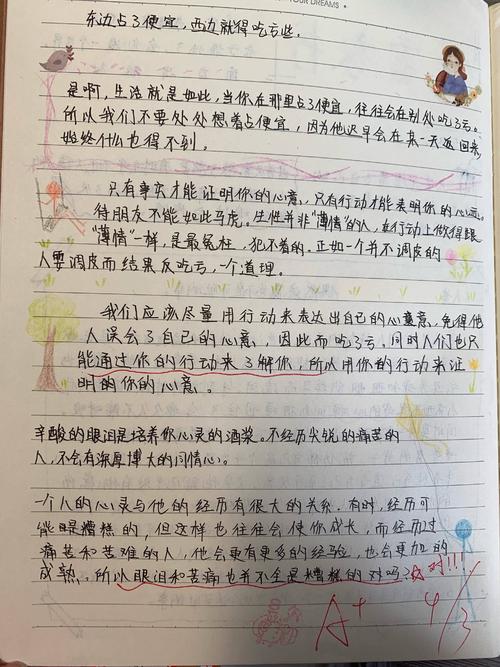 YOUR DREAMS
东边占了便宜,西边就得吃亏些.
是啊,生活就是如此,当你在那里占了便宜,往往会在别处吃了亏。
所以我们不要处处想着占便宜,因为他迟早会在某一天返回来,
始终什么也得不到。
只有事实才能证明你的心意,只有行动才能表明你的心迹。
待朋友不能如此马虎。生性并非“薄情”的人,在行动上做得跟
“薄情”一样,是最冤枉,犯不着的。正如一个并不调皮的
人要调皮而结果反吃亏,一个道理。
我们应该尽量用行动来表达出自己的心意,免得他
人误会了自己的心意,因此而吃了亏,同时人们也只
能通过你的行动来了解你,所以用你的行动来证
明的你的心意。
辛酸的眼泪是培养你心灵的酒浆。不经历尖锐的痛苦的
人,不会有深厚博大的同情心。
一个人的心灵与他的经历有很大的关系.有时,经历可
能是糟糕的,但这样也往往会使你成长,而经历过
痛苦和苦难的人,他会更有更多的经验,也会更加的
成熟,所以眼泪和苦痛也并不全是糟糕的对吗?
对!!!
A+
4/3